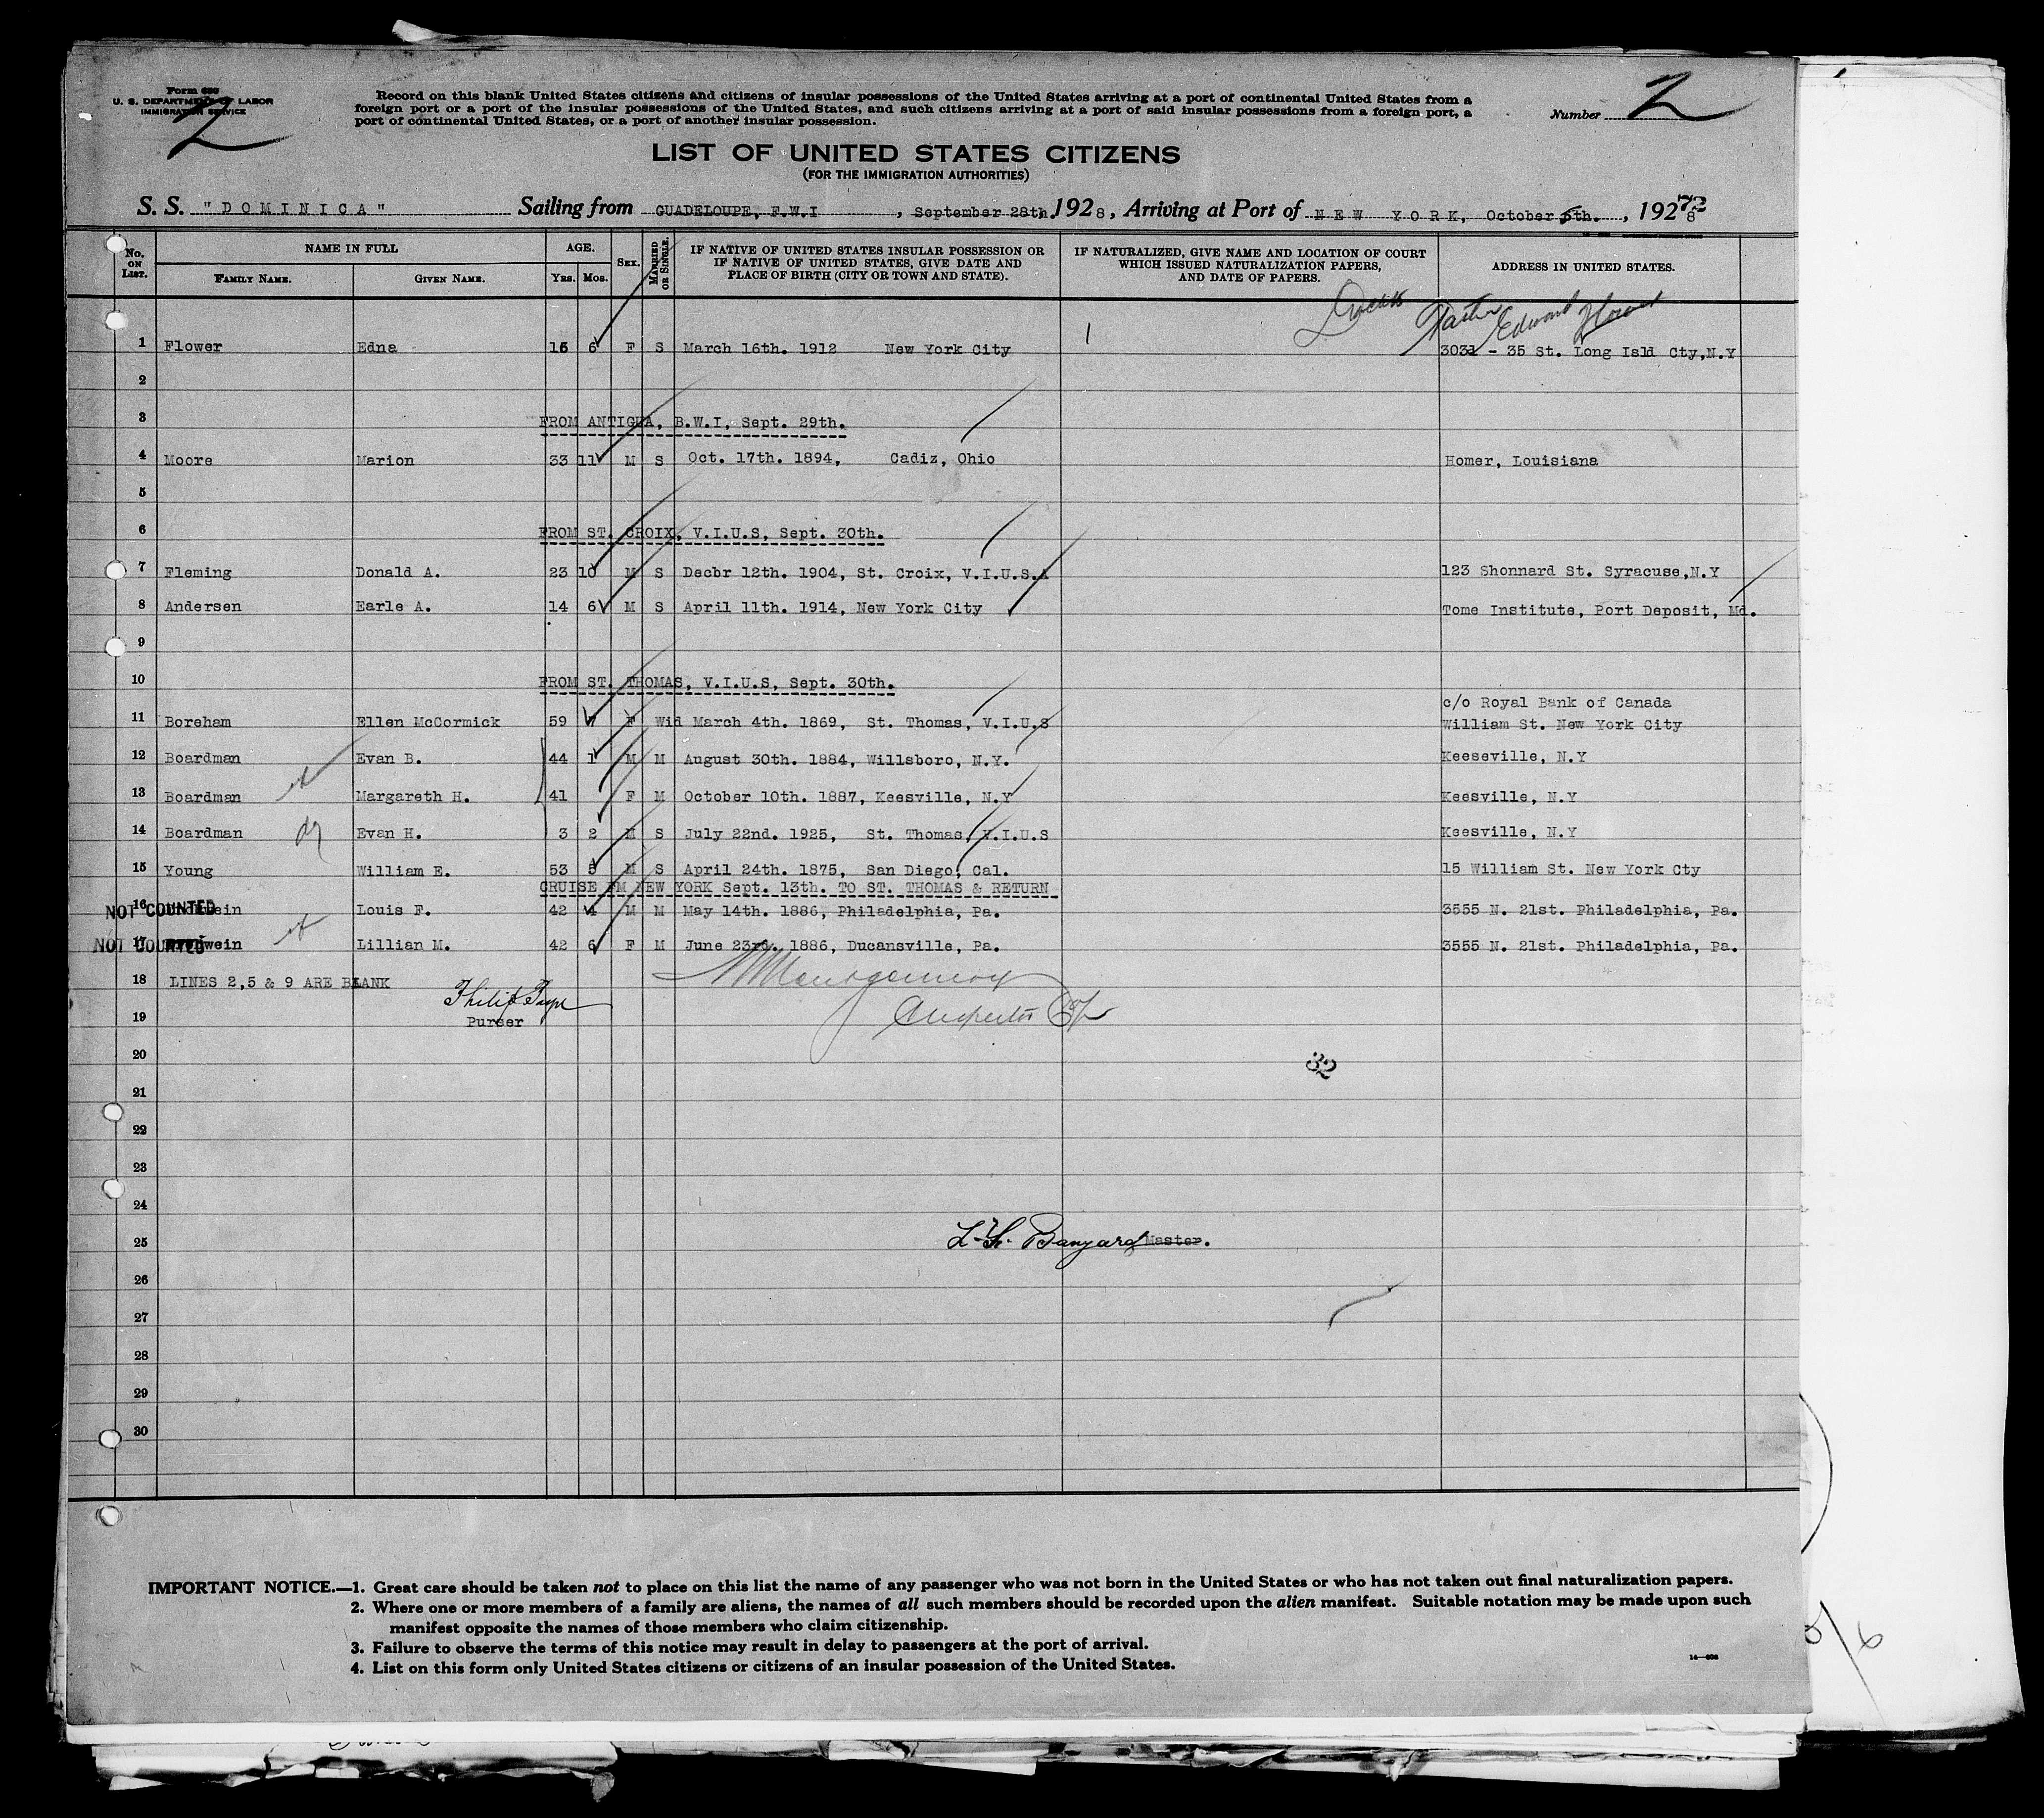 Form 630
U. S. DEPARTMENT OF LABOR
IMMIGRATION SERVICE
2
Record on this blank United States citizens and citizens of insular possessions of the United States arriving at a port of continental United States from a
foreign port or a port of the insular possessions of the United States, and such citizens arriving at a port of said insular possessions from a foreign port, a
port of continental United States, or a port of another insular possession.
Number 2
LIST OF UNITED STATES CITIZENS
(FOR THE IMMIGRATION AUTHORITIES)
S. S. "DOMINICA" Sailing from GUADELOUPE, F.W.I , September 28th, 1928, Arriving at Port of NEW YORK, October 5th. , 1928
72
No. ON LIST. NAME IN FULL FAMILY NAME. GIVEN NAME. AGE. YRS. MOS. SEX. MARRIED OR SINGLE. IF NATIVE OF UNITED STATES INSULAR POSSESSION OR IF NATIVE OF UNITED STATES, GIVE DATE AND PLACE OF BIRTH (CITY OR TOWN AND STATE). IF NATURALIZED, GIVE NAME AND LOCATION OF COURT WHICH ISSUED NATURALIZATION PAPERS, AND DATE OF PAPERS. ADDRESS IN UNITED STATES.
Edward Flower
1 Flower Edna 16 6 F S March 16th. 1912 New York City 3031 - 35 St. Long Isld Cty,N.Y
2
3 FROM ANTIGUA, B.W.I, Sept. 29th.
4 Moore Marion 33 11 M S Oct. 17th. 1894, Cadiz, Ohio Homer, Louisiana
5
6 FROM ST. CROIX, V.I.U.S, Sept. 30th.
7 Fleming Donald A. 23 10 M S Decbr 12th. 1904, St. Croix, V.I.U.S.A 123 Shonnard St. Syracuse,N.Y
8 Andersen Earle A. 14 6 M S April 11th. 1914, New York City Tome Institute, Port Deposit, Md.
9
10 FROM ST. THOMAS, V.I.U.S, Sept. 30th.
c/o Royal Bank of Canada
11 Boreham Ellen McCormick 59 7 F Wid March 4th. 1869, St. Thomas, V.I.U.S William St. New York City
12 Boardman Evan B. 44 1 M M August 30th. 1884, Willsboro, N.Y. Keeseville, N.Y
13 Boardman Margareth H. 41 F M October 10th. 1887, Keesville, N.Y Keesville, N.Y
14 Boardman Evan H. 3 2 M S July 22nd. 1925, St. Thomas, V.I.U.S Keesville, N.Y
15 Young William E. 53 5 M S April 24th. 1875, San Diego, Cal. 15 William St. New York Cty
CRUISE FM NEW YORK Sept. 13th. TO ST. THOMAS & RETURN
NOT COUNTED 16 Louis F. 42 4 M M May 14th. 1886, Philadelphia, Pa. 3555 N. 21st. Philadelphia, Pa.
NOT COUNTED 17 Lillian M. 42 6 F M June 23rd. 1886, Ducansville, Pa. 3555 N. 21st. Philadelphia, Pa.
18 LINES 2,5 & 9 ARE BLANK
Montgomery
19 Philip
Purser
Inspector
20
32
21
22
23
24
25 Banyard Master.
26
27
28
29
30
IMPORTANT NOTICE.—1. Great care should be taken not to place on this list the name of any passenger who was not born in the United States or who has not taken out final naturalization papers.
2. Where one or more members of a family are aliens, the names of all such members should be recorded upon the alien manifest. Suitable notation may be made upon such
manifest opposite the names of those members who claim citizenship.
3. Failure to observe the terms of this notice may result in delay to passengers at the port of arrival.
4. List on this form only United States citizens or citizens of an insular possession of the United States.